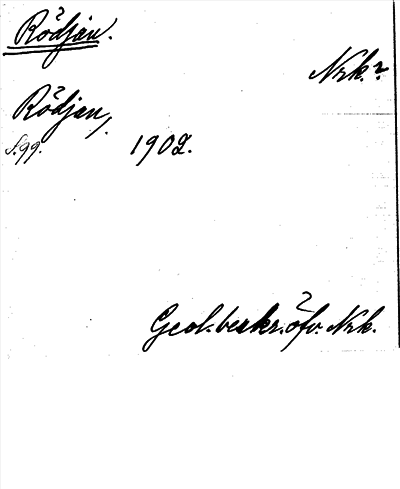 Rödjan.
Nrk.?
Rödjan,
s. 99. 1902.
Geol. beskr. öfv. Nrk.